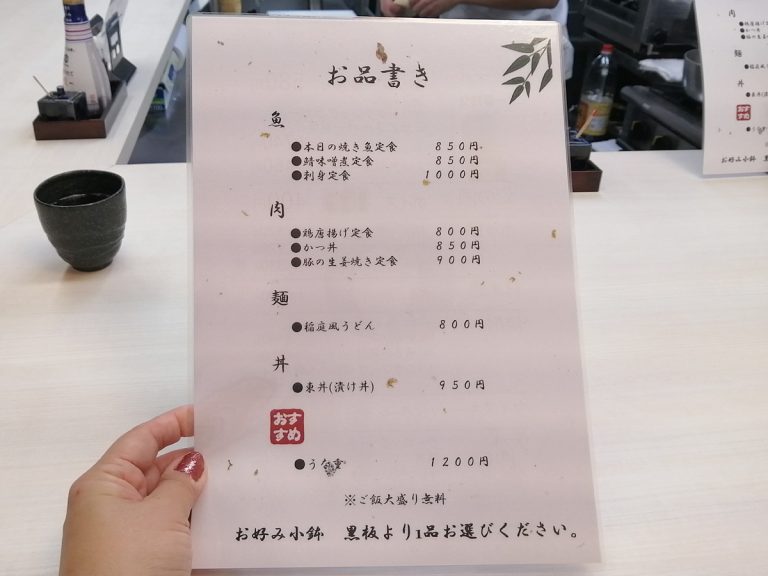 お品書き
魚
●本日の焼き魚定食 850円
●鯖味噌煮定食 850円
●刺身定食 1000円
肉
●鶏唐揚げ定食 800円
●かつ丼 850円
●豚の生姜焼き定食 900円
麺
●稲庭風うどん 800円
丼
●東丼(漬け丼) 950円
おすすめ
●うな重 1200円
※ご飯大盛り無料
お好み小鉢 黒板より1品お選びください。
肉
●鶏唐揚げ
●かつ丼
●豚の生姜
麺
●稲庭風
丼
●東丼(漬
おすすめ
お好み小鉢 黒